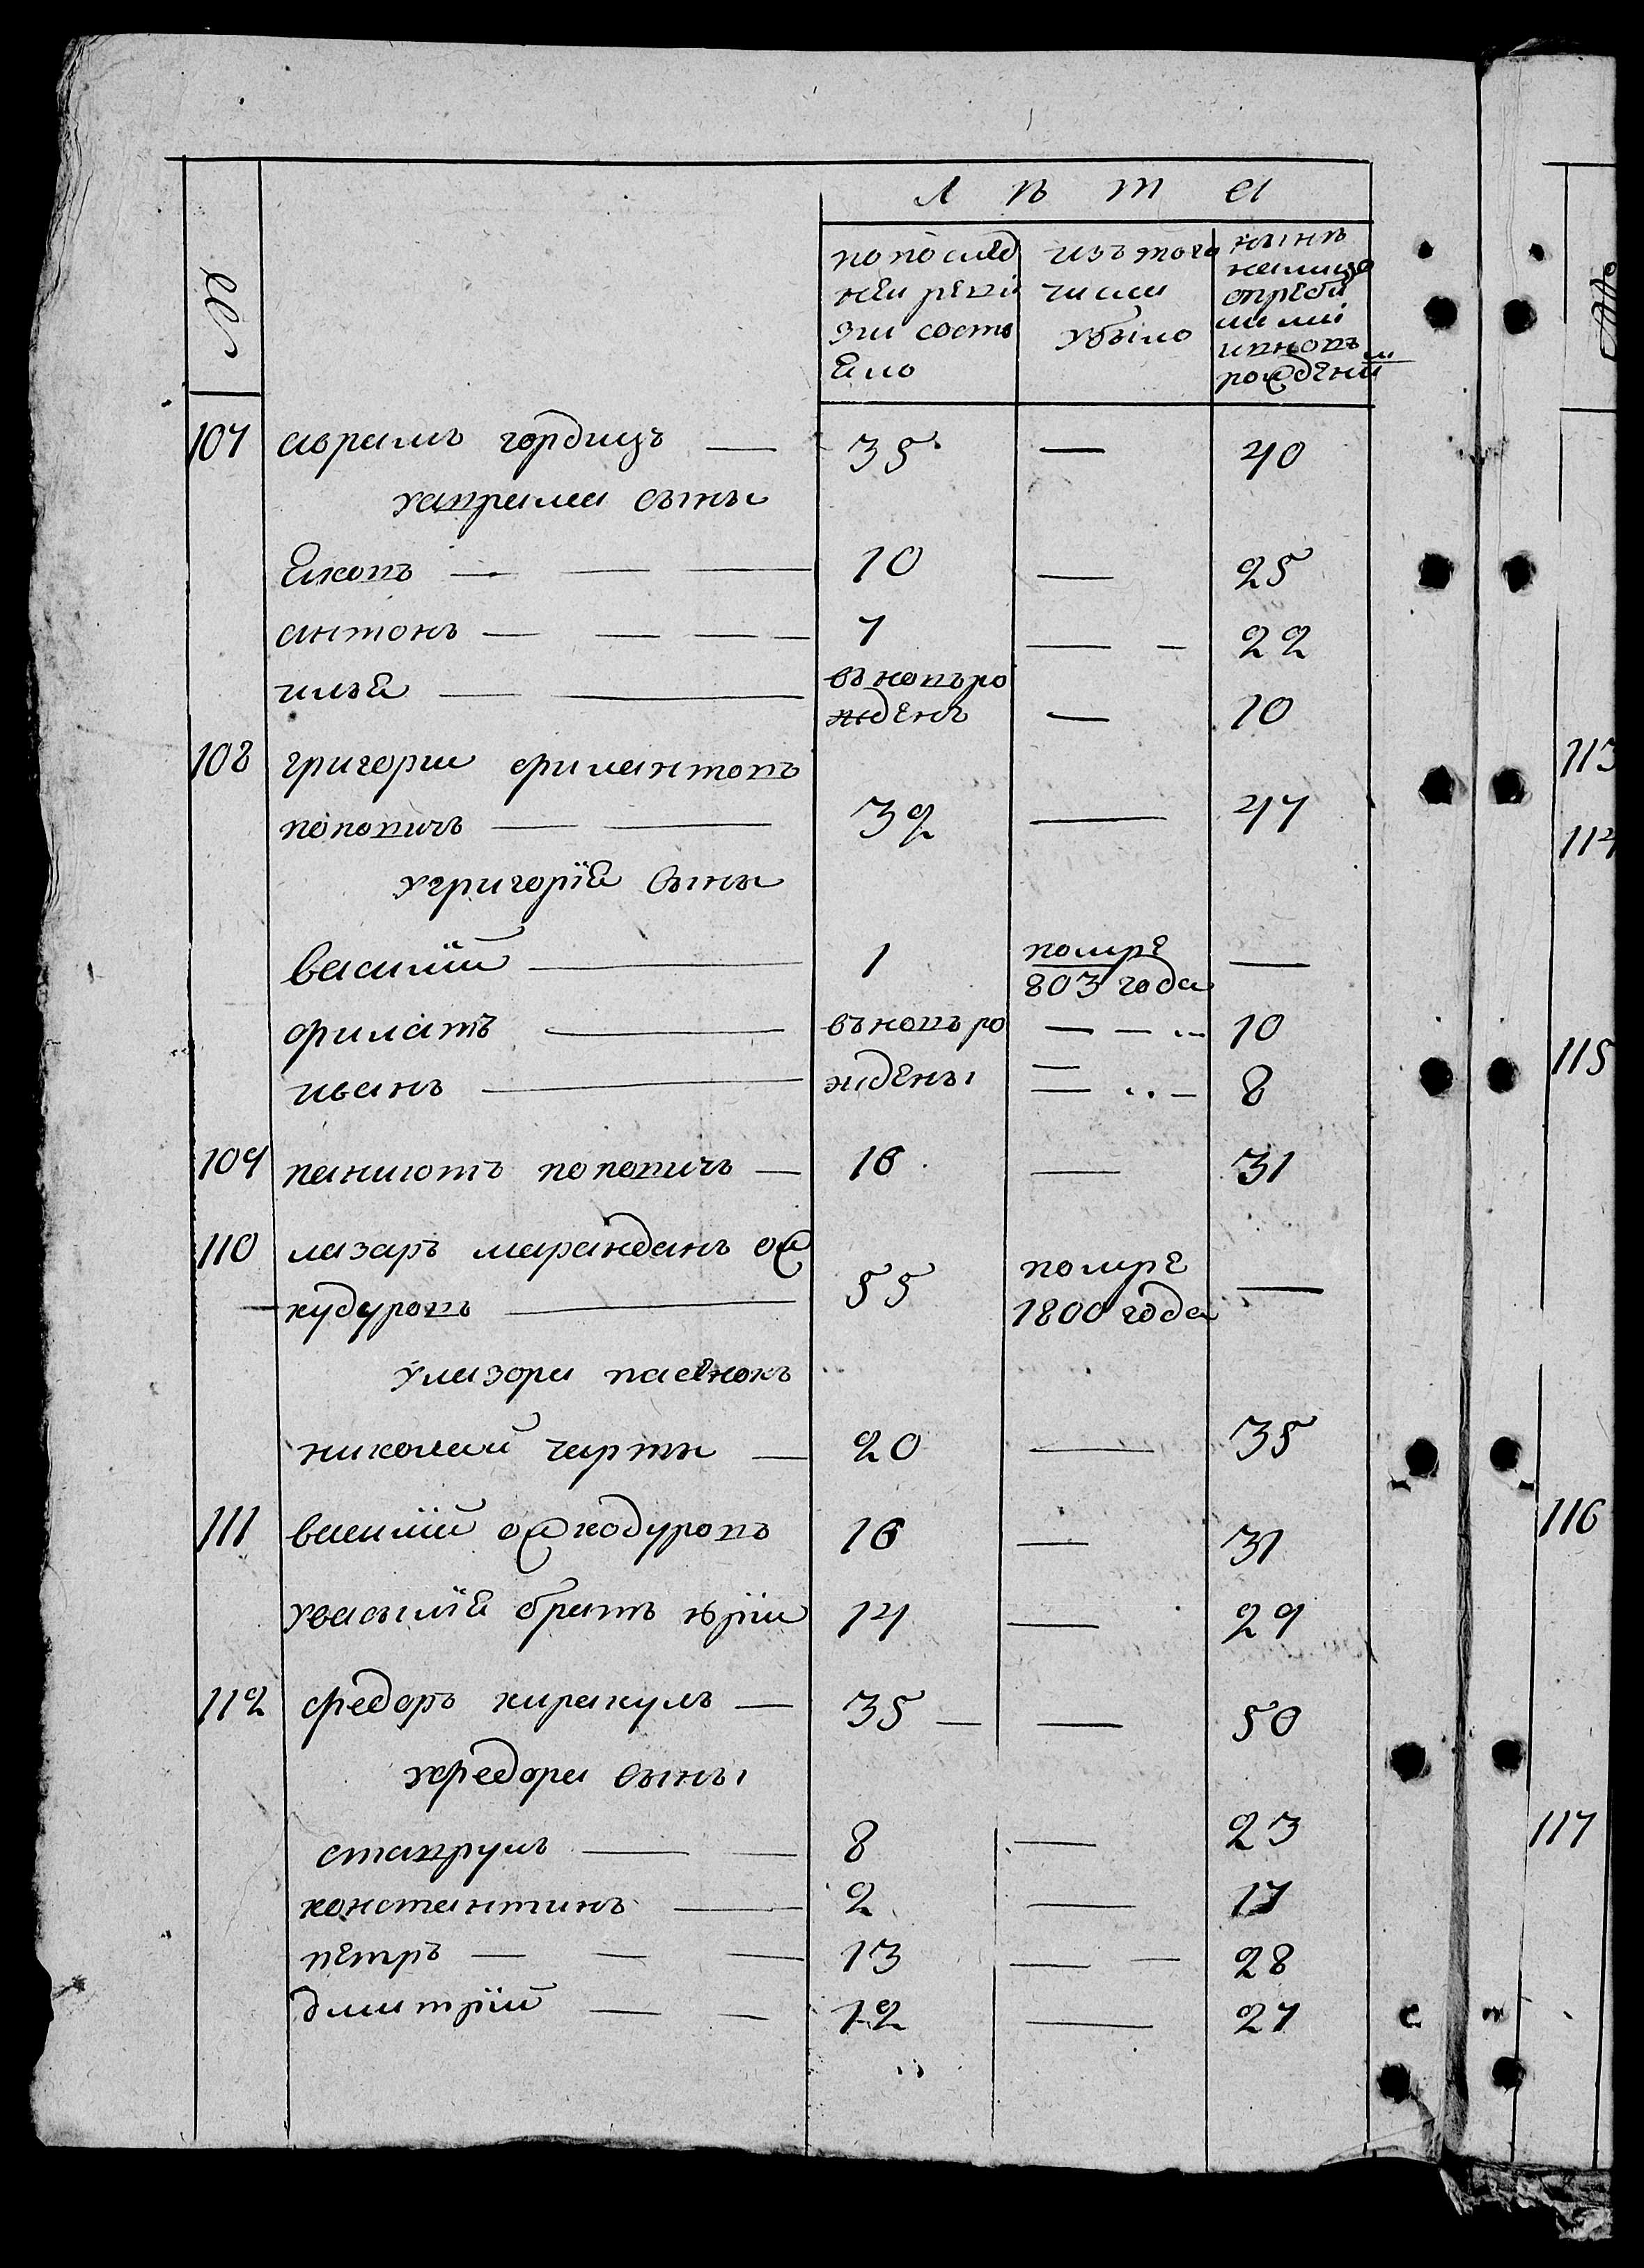 №
Л ѣ т а
по послед
ней реви
зии состо
яло
изъ того
числа
убыло
ныне
налицо
спребы
лыми
иновь
рожденными
107 аврамъ гордицъ — 35 — 40
у аврама сыны
яковъ — 10 — 25
антонъ — 7 — 22
илья — въновь ро
жденъ — 10
108 григори филантовъ
поповичъ — 32 — 47
у григорїя сыны
василїй — 1 помре
803 года —
филатъ — въновь ро — 10
иванъ — ждены — 8
109 паниотъ поповичъ — 16 — 31
110 лазаръ маранданъ ож
кудуровъ — 55 помре
1800 года —
у лазора пасенокъ
николай чарты — 20 — 35
111 василїй ожкодуровъ 16 — 31
у василїя братъ юрїи 14 — 29
112 федоръ каракулъ — 35 — 50
у федора сыны
ставрулъ — 8 — 23
константинъ — 2 — 17
петръ — 13 — 28
дмитрїй — 12 — 27
113
114
115
116
117